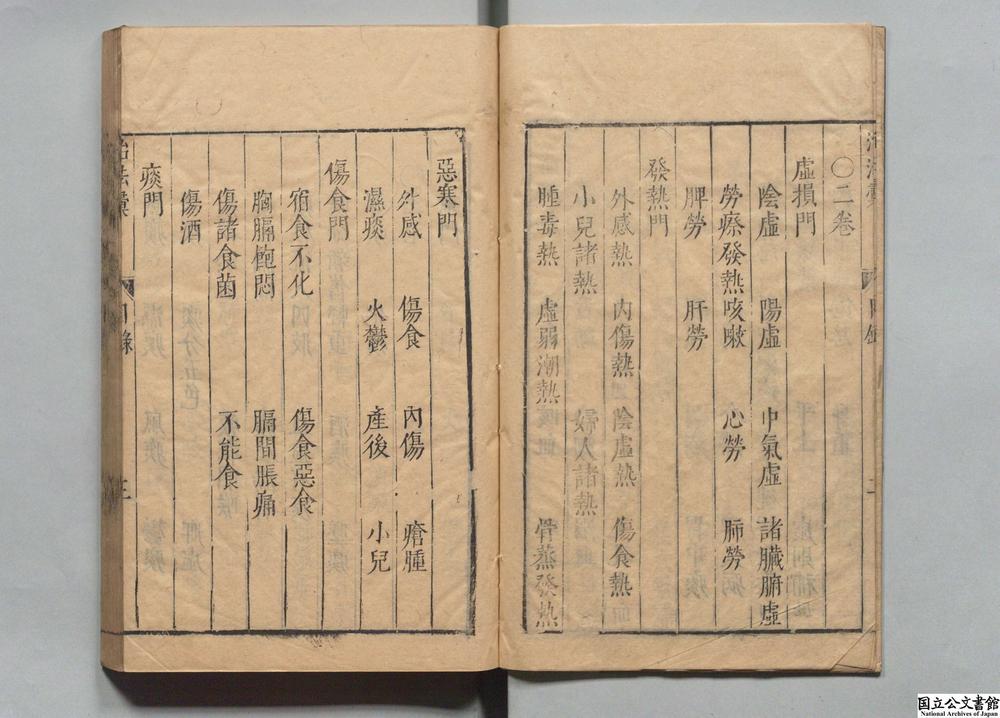 〇二卷
虛損門
陰虛 陽虛 中氣虛 諸臟腑虛
勞瘵發熱咳嗽 心勞 肺勞
脾勞 肝勞
發熱門
外感熱 內傷熱 陰虛熱 傷食熱
小兒諸熱 婦人諸熱
腫毒熱 虛弱潮熱 骨蒸發熱
惡寒門
外感 傷食 內傷 瘡腫
濕痰 火鬱 產後 小兒
傷食門
宿食不化 傷食惡食
胸膈飽悶 膈間脹痛
傷諸食菌 不能食
傷酒
痰門
治法彙 目錄 三
国立公文書館
National Archives of Japan